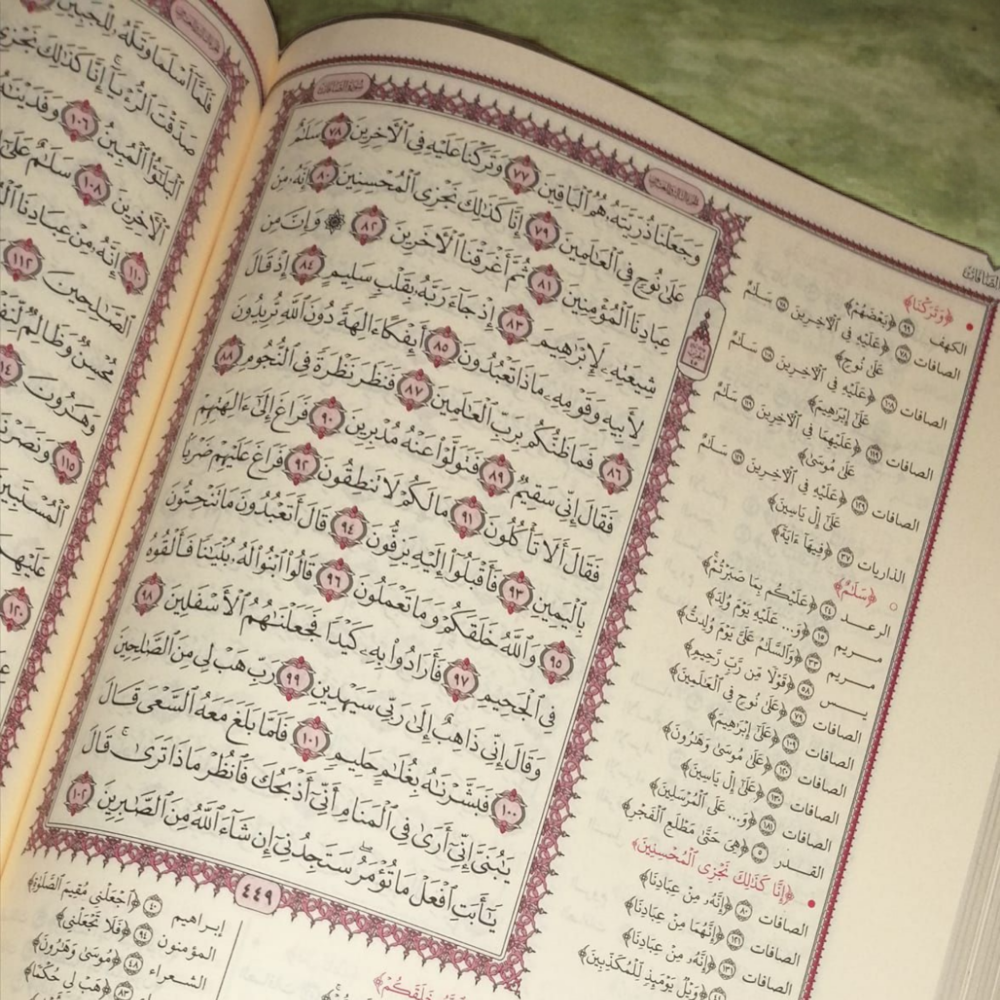 سُورَةُ الصَّافَّاتِ
وَجَعَلْنَا ذُرِّيَّتَهُۥ هُمُ ٱلْبَاقِينَ ٧٧ وَتَرَكْنَا عَلَيْهِ فِى ٱلْأٓخِرِينَ ٧٨ سَلَٰمٌ
عَلَىٰ نُوحٍ فِى ٱلْعَٰلَمِينَ ٧٩ إِنَّا كَذَٰلِكَ نَجْزِى ٱلْمُحْسِنِينَ ٨٠ إِنَّهُۥ مِنْ
عِبَادِنَا ٱلْمُؤْمِنِينَ ٨١ ثُمَّ أَغْرَقْنَا ٱلْأٓخَرِينَ ٨٢ ۞ وَإِنَّ مِن
شِيعَتِهِۦ لَإِبْرَٰهِيمَ ٨٣ إِذْ جَآءَ رَبَّهُۥ بِقَلْبٍ سَلِيمٍ ٨٤ إِذْ قَالَ
لِأَبِيهِ وَقَوْمِهِۦ مَاذَا تَعْبُدُونَ ٨٥ أَئِفْكًا ءَالِهَةً دُونَ ٱللَّهِ تُرِيدُونَ
٨٦ فَمَا ظَنُّكُم بِرَبِّ ٱلْعَٰلَمِينَ ٨٧ فَنَظَرَ نَظْرَةً فِى ٱلنُّجُومِ ٨٨
فَقَالَ إِنِّى سَقِيمٌ ٨٩ فَتَوَلَّوْا۟ عَنْهُ مُدْبِرِينَ ٩٠ فَرَاغَ إِلَىٰٓ ءَالِهَتِهِمْ
فَقَالَ أَلَا تَأْكُلُونَ ٩١ مَا لَكُمْ لَا تَنطِقُونَ ٩٢ فَرَاغَ عَلَيْهِمْ ضَرْبًۢا
بِٱلْيَمِينِ ٩٣ فَأَقْبَلُوٓا۟ إِلَيْهِ يَزِفُّونَ ٩٤ قَالَ أَتَعْبُدُونَ مَا تَنْحِتُونَ
٩٥ وَٱللَّهُ خَلَقَكُمْ وَمَا تَعْمَلُونَ ٩٦ قَالُوا۟ ٱبْنُوا۟ لَهُۥ بُنْيَٰنًا فَأَلْقُوهُ
فِى ٱلْجَحِيمِ ٩٧ فَأَرَادُوا۟ بِهِۦ كَيْدًا فَجَعَلْنَٰهُمُ ٱلْأَسْفَلِينَ ٩٨
وَقَالَ إِنِّى ذَاهِبٌ إِلَىٰ رَبِّى سَيَهْدِينِ ٩٩ رَبِّ هَبْ لِى مِنَ ٱلصَّٰلِحِينَ
١٠٠ فَبَشَّرْنَٰهُ بِغُلَٰمٍ حَلِيمٍ ١٠١ فَلَمَّا بَلَغَ مَعَهُ ٱلسَّعْىَ قَالَ
يَٰبُنَىَّ إِنِّىٓ أَرَىٰ فِى ٱلْمَنَامِ أَنِّىٓ أَذْبَحُكَ فَٱنظُرْ مَاذَا تَرَىٰ ۚ قَالَ
يَٰٓأَبَتِ ٱفْعَلْ مَا تُؤْمَرُ ۖ سَتَجِدُنِىٓ إِن شَآءَ ٱللَّهُ مِنَ ٱلصَّٰبِرِينَ ١٠٢
٤٤٩
﴿وَتَرَكْنَا﴾
الكهف ٩٩ ﴿بَعْضَهُمْ﴾
الصافات ٧٨ ﴿عَلَيْهِ فِي ٱلْأٓخِرِينَ ٧٨ سَلَٰمٌ
عَلَىٰ نُوحٍ﴾
الصافات ١٠٨ ﴿عَلَيْهِ فِي ٱلْأٓخِرِينَ ١٠٨ سَلَٰمٌ
عَلَىٰٓ إِبْرَٰهِيمَ﴾
الصافات ١١٩ ﴿عَلَيْهِمَا فِي ٱلْأٓخِرِينَ ١١٩ سَلَٰمٌ
عَلَىٰ مُوسَىٰ﴾
الصافات ١٢٩ ﴿عَلَيْهِ فِي ٱلْأٓخِرِينَ ١٢٩ سَلَٰمٌ
عَلَىٰٓ إِلْ يَاسِينَ﴾
الذاريات ٣٧ ﴿فِيهَآ ءَايَةً﴾
﴿سَلَٰمٌ﴾
الرعد ٢٤ ﴿عَلَيْكُم بِمَا صَبَرْتُمْ﴾
مريم ١٥ ﴿وَ... عَلَيْهِ يَوْمَ وُلِدَ﴾
مريم ٣٣ ﴿وَٱلسَّلَٰمُ عَلَيَّ يَوْمَ وُلِدتُّ﴾
يس ٥٨ ﴿قَوْلًا مِّن رَّبٍّ رَّحِيمٍ﴾
الصافات ٧٩ ﴿عَلَىٰ نُوحٍ فِي ٱلْعَٰلَمِينَ﴾
الصافات ١٠٩ ﴿عَلَىٰٓ إِبْرَٰهِيمَ﴾
الصافات ١٢٠ ﴿عَلَىٰ مُوسَىٰ وَهَٰرُونَ﴾
الصافات ١٣٠ ﴿عَلَىٰٓ إِلْ يَاسِينَ﴾
الصافات ١٨١ ﴿وَ... عَلَى ٱلْمُرْسَلِينَ﴾
القدر ٥ ﴿هِيَ حَتَّىٰ مَطْلَعِ ٱلْفَجْرِ﴾
﴿إِنَّا كَذَٰلِكَ نَجْزِي ٱلْمُحْسِنِينَ﴾
الصافات ٨٠ ﴿إِنَّهُۥ مِنْ عِبَادِنَا﴾
الصافات ١٢١ ﴿إِنَّهُمَا مِنْ عِبَادِنَا﴾
الصافات ١٣١ ﴿إِنَّهُۥ مِنْ عِبَادِنَا﴾
﴿وَيْلٌ يَوْمَئِذٍ لِّلْمُكَذِّبِينَ﴾
إبراهيم ٤٠ ﴿ٱجْعَلْنِي مُقِيمَ ٱلصَّلَوٰةِ﴾
المؤمنون ٩٤ ﴿فَلَا تَجْعَلْنِي﴾
الشعراء ٤٨ ﴿مُوسَىٰ وَهَٰرُونَ﴾
٨٣ ﴿هَبْ لِي حُكْمًا﴾
فَلَمَّآ أَسْلَمَا وَتَلَّهُۥ لِلْجَبِينِ
صَدَّقْتَ ٱلرُّءْيَآ ۚ إِنَّا كَذَٰلِكَ نَجْزِى
ٱلْبَلَٰٓؤُا۟ ٱلْمُبِينُ ١٠٦ وَفَدَيْنَٰهُ
ٱلْأٓخِرِينَ ١٠٨ سَلَٰمٌ عَلَىٰٓ
١١٠ إِنَّهُۥ مِنْ عِبَادِنَا
ٱلصَّٰلِحِينَ ١١٢
مُحْسِنٌ وَظَالِمٌ لِّنَفْسِهِ
وَهَٰرُونَ ١١٤
١١٥ وَنَصَرْنَٰ
ٱلْمُسْتَبِينَ
عَلَيْهِمَا
١٢٠